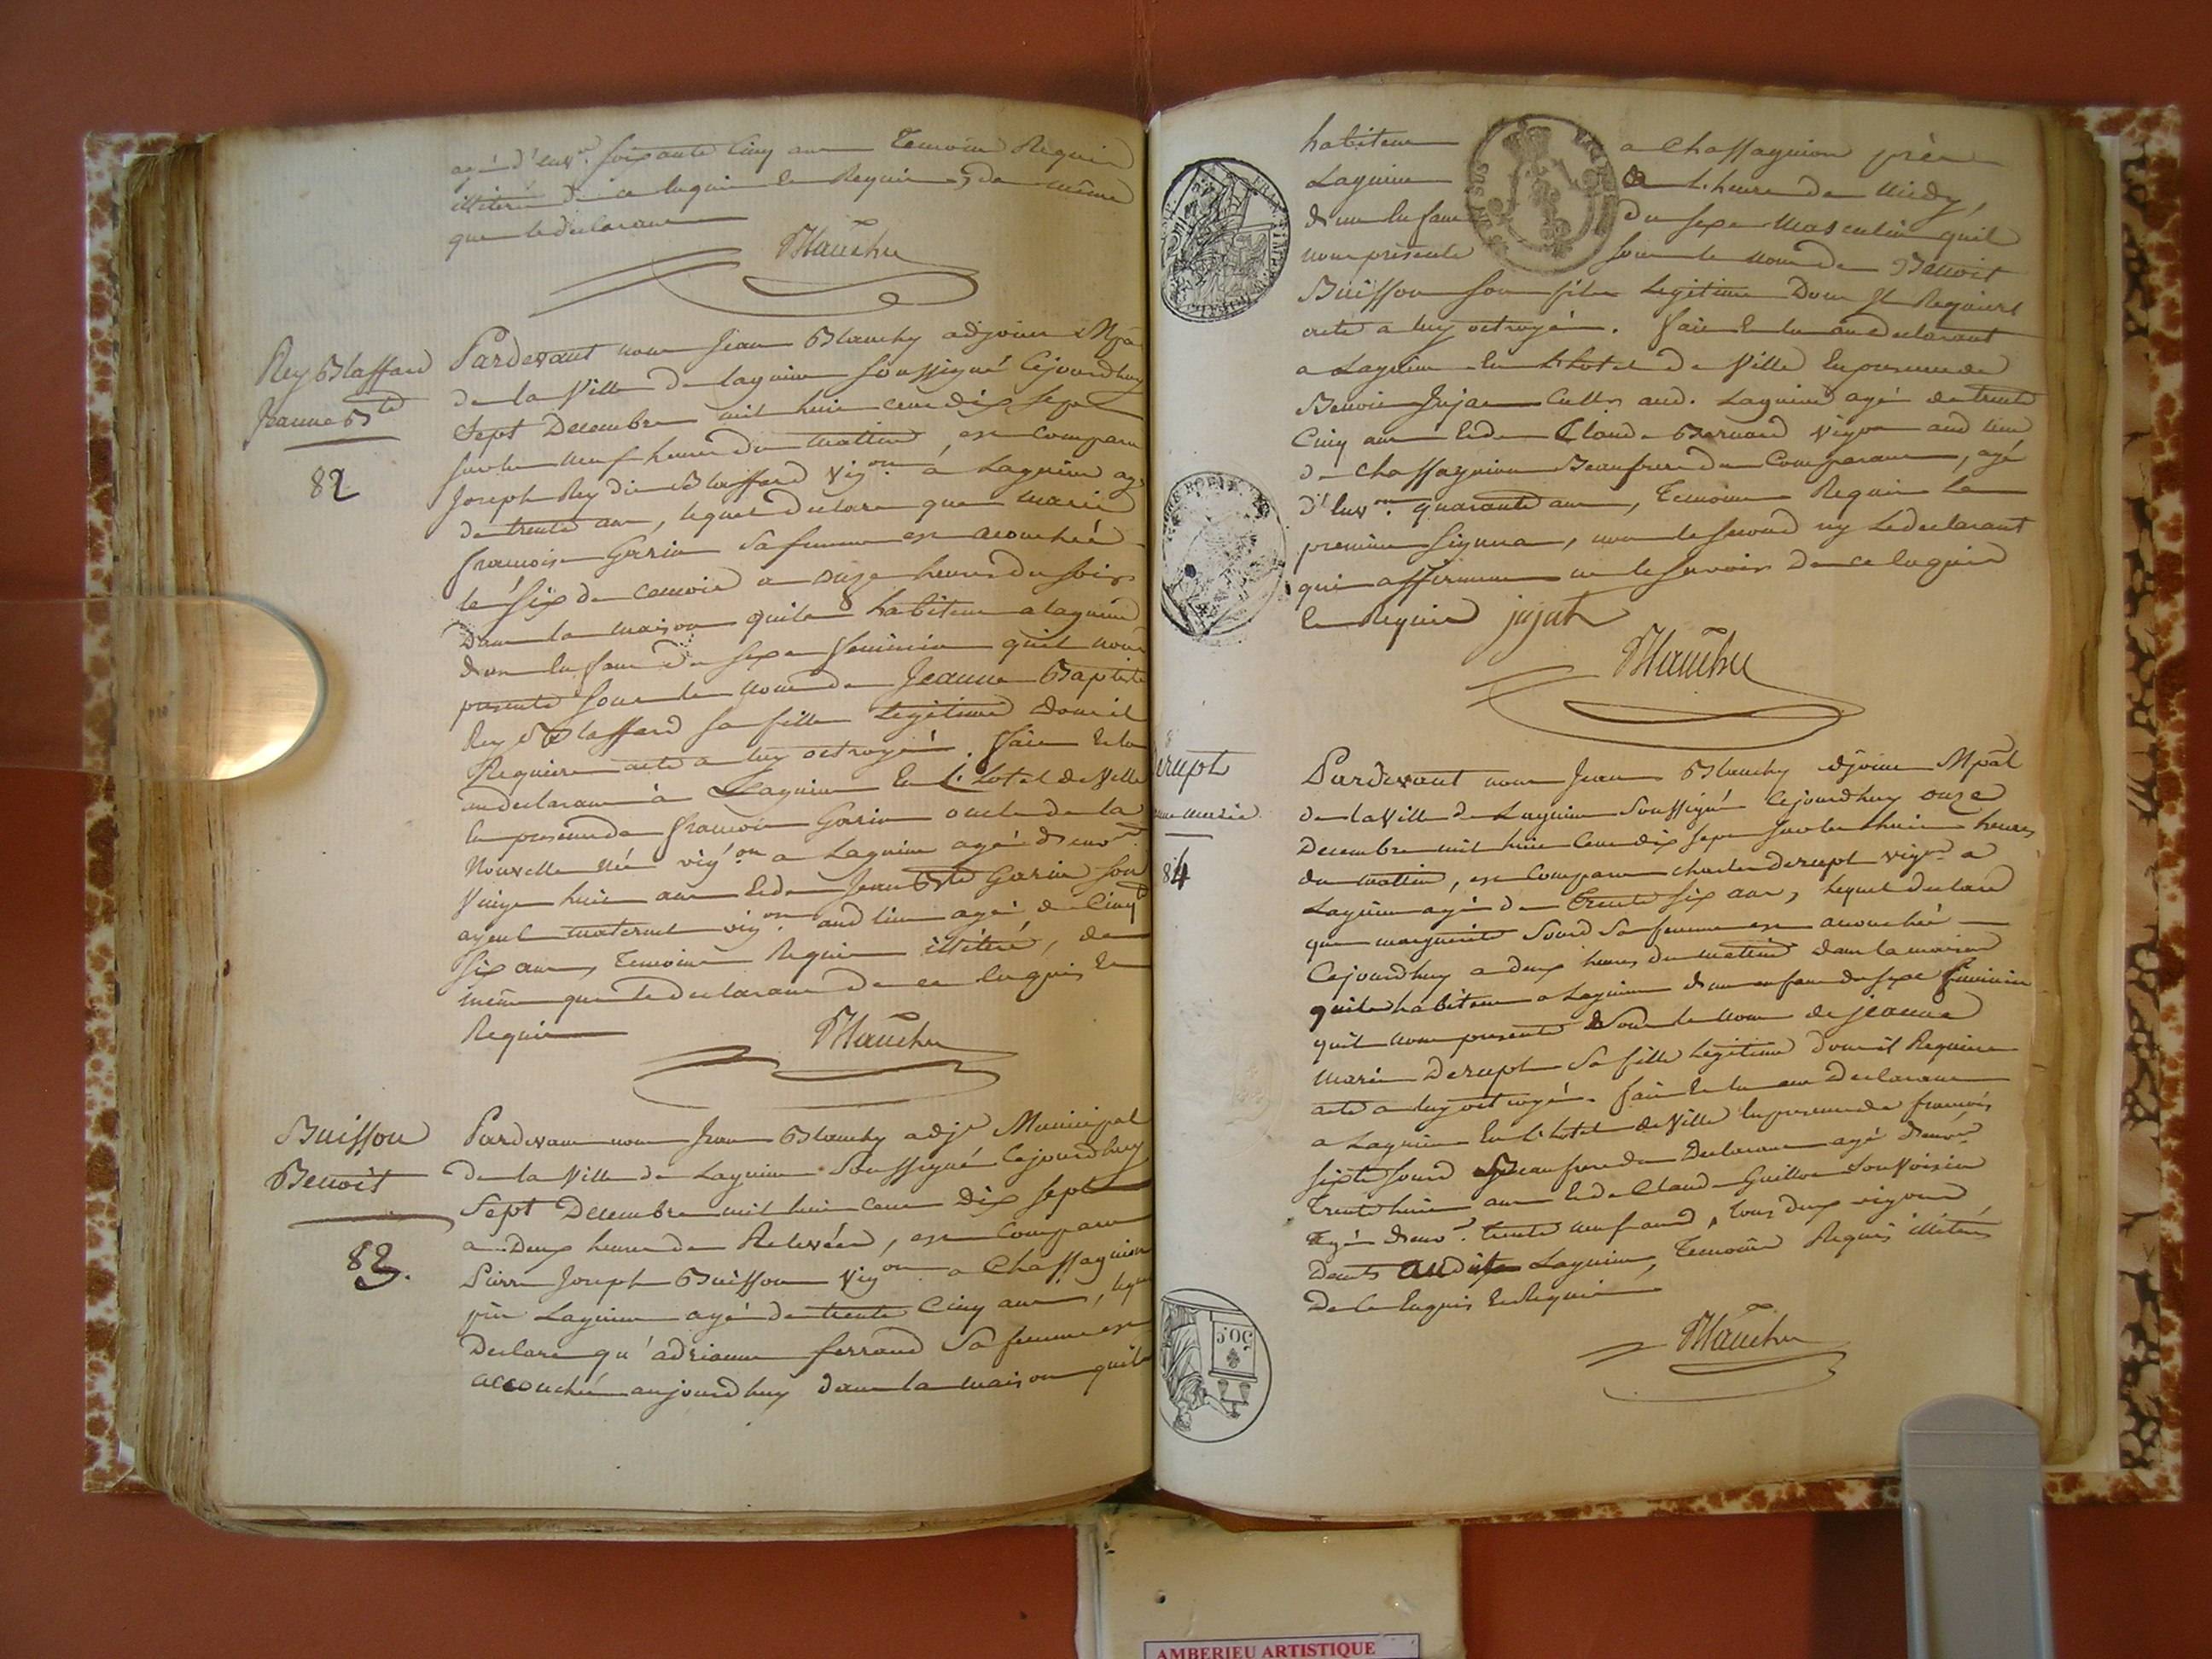 agé d'env.on soixante Cinq ans Temoins Requis
illiteré de ce enquis et Requis, de même
que le declarant
Blanchy
Rey Blaffard
Jeanne Bte
82
Pardevant nous Jean Blanchy adjoint Mpal
de la Ville de lagnieu soussigné Cejourdhuy
Sept Decembre mil huit cent dix sept
sur les neuf heures du mattin, est comparu
Joseph Rey dit Blaffard vig.on à Lagnieu agé
de trente ans, lequel declare que marie
francoise Garin sa femme est acouchée
le six du courant a onze heures du soir
Dans la maison quils habitent a lagnieu
dun Enfant du sexe feminin quil nous
presente sous le nom de Jeanne Baptiste
Rey Blaffard sa fille Legitime dont il
Requiert acte a luy octroyée. faite et lu
au declarant à Lagnieu En L'hotel de Ville
En presence de francois Garin oncle de la
Nouvelle Née vig.on a Lagnieu agé d'env.on
Vingt huit ans et de Jean Bte Garin son
ayeul maternel vig.on aud lieu agé de Cinqte
six ans, Temoins Requis illiteré, de
même que le declarant de ce enquis et
Requis
Blanchy
Buisson
Benoit
83.
Pardevant nous Jean Blanchy adjt Municipal
de la Ville de Lagnieu Soussigné Cejourdhuy
Sept Decembre mil huit cent Dix sept
a Deux heures de Relevée, est Comparu
Pierre Joseph Buisson vig.on a Chassagnion
près Lagnieu agé de trente Cinq ans, lequel
Declare qu'adrianne ferrand sa femme est
accouchée aujourdhuy dans la maison quils
habitent a Chassagnion près
Lagnieu a L'heure de Midy,
d'un Enfant du sexe Masculin quil
nous présente sous le nom de Benoit
Buisson son fils Legitime Dont Il Requiert
acte a luy octroyée. Faite et lu au declarant
a Lagnieu En L'hotel de Ville En presence de
Benoit Jujat Cultr aud. Lagnieu agé de trente
Cinq ans et de Claude Bernard vigon aud lieu
de Chassagnion Beaufrere du Comparant, agé
d'env.on quarante ans, Temoins Requis Le
premier signera, non le second ny Le declarant
qui affirment ne le savoir De ce enquis
et Requis jujat
Blanchy
Derupt
Jeanne marie
84
Pardevant nous Jean Blanchy adjoint Mpal
de la Ville de Lagnieu Soussigné Cejourdhuy onze
Decembre mil huit Cent dix sept sur les huit heures
du mattin, est Comparu charles derupt vigon a
Lagnieu agé de Trente six ans, lequel declare
que marguerite Sourd Sa femme est acouchée
Cejourdhuy a deux heures du mattin dans la maison
quils habitent a Lagnieu dun enfant du sexe feminin
quil nous presente Sous le nom de jeanne
Marie Derupt Sa fille Legitime dont il Requiert
acte a luy octroyée. fait et lu au Declarant
a Lagnieu En L'hotel de Ville En presence de francois
sixte Sourd Beaufrere du Declarant agé d'env.on
Trente huit ans et de Claude Guillot Son Voisin
agé d'env.on trente neuf ans, tous deux vigons
Deurts audit Lagnieu, Temoins Requis illiterés
De Ce Enquis et Requis
Blanchy
50.C
AMBERIEU ARTISTIQUE